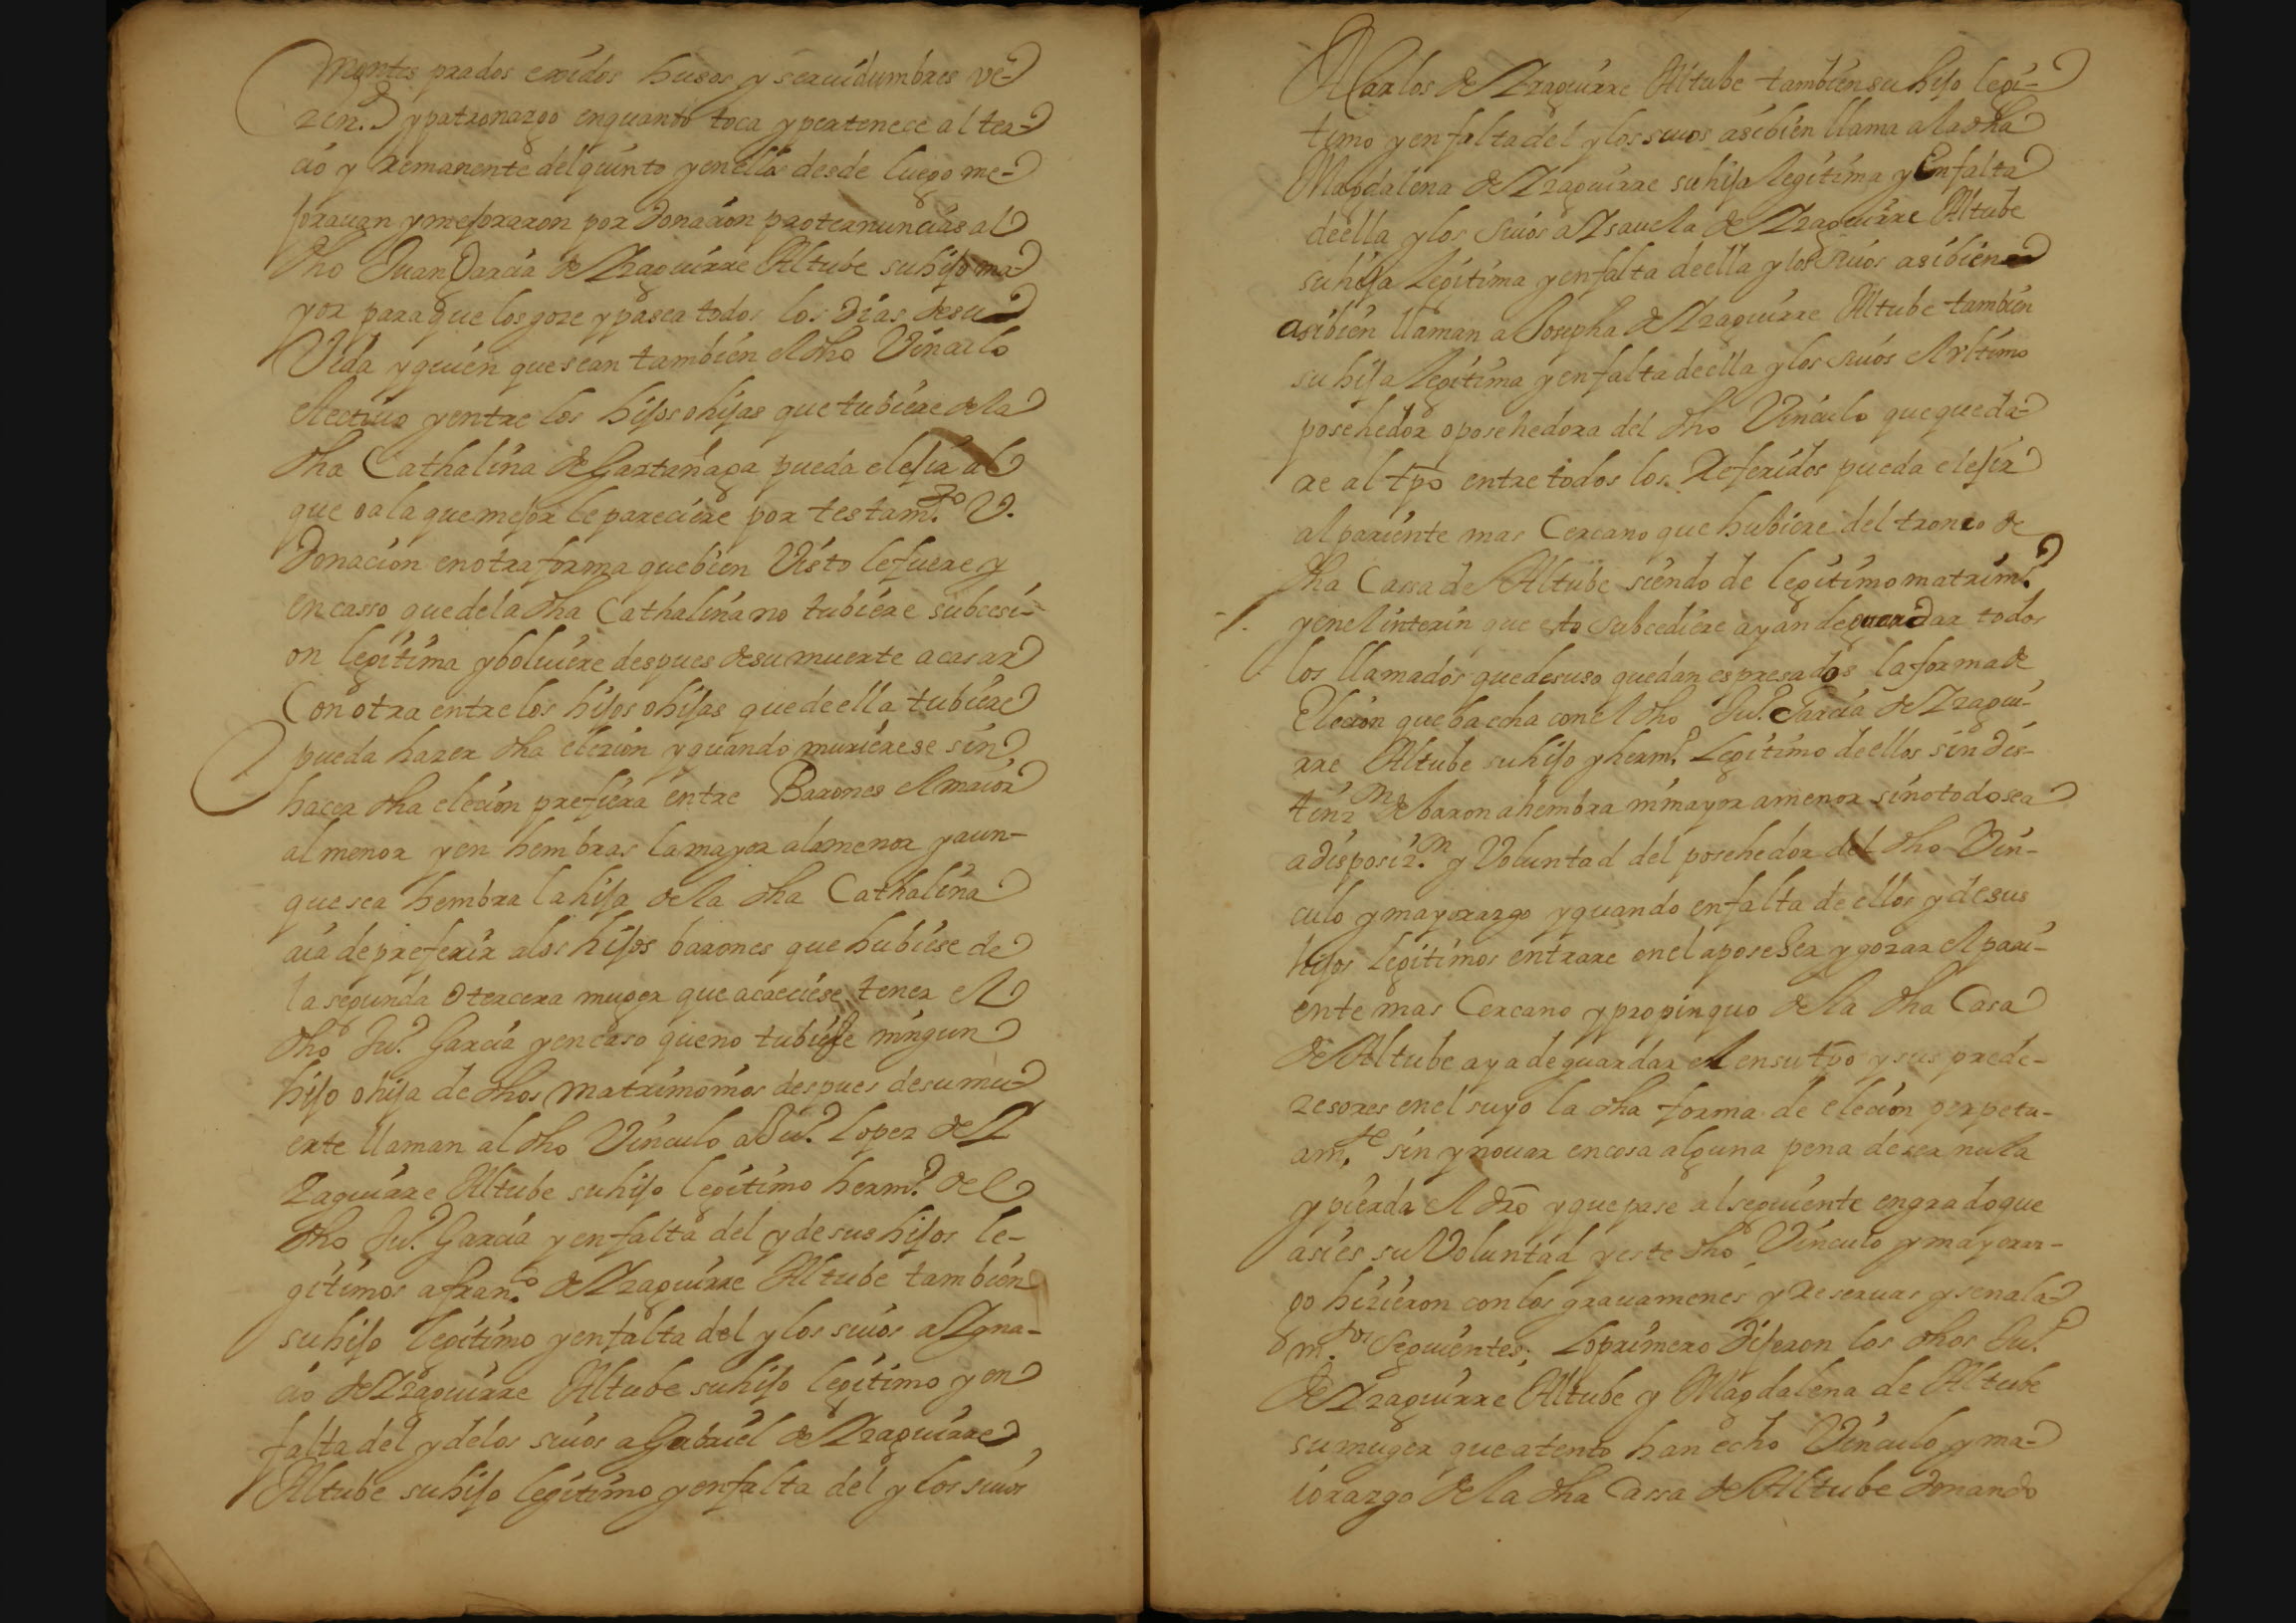 Montes prados exidos husos y seruidumbres ve-
zin.s y patronazgo enquanto toca y pertenece al ter-
cio y Remanente del quinto y en ellos desde luego me-
jorauan y mejoraron por Donacion propter nuncias al
dho Juan Garcia de Yzaguirre Altube su hijo ma-
yor para que los goze y pasea todos los Dias de su
Vida y quien que sean tambien el dho Vinculo
electiuo y entre los hijos o hijas que tubiere de la
dha Cathalina de Gartañaga pueda elejir al
que o a la que mejor le pareciere por testam.to V.
Donacion en otra forma que bien Visto le fuere y
en casso que de la dha Cathalina no tubiere subcesi-
on legitima y boluiere despues de su muerte a casar
Con otra entre los hijos o hijas que de ella tubiere
pueda hazer dha elecion y quando muriere se sin
hacer dha elecion prefiera entre Barones el maior
al menor y en hembras la mayor a la menor y aun-
que sea hembra la hija de la dha Cathalina
aia de preferir a los hijos barones que hubiese de
la segunda o tercera muger que acaeciese tener el
dho Ju.o Garcia y en caso que no tubiese ningun
hijo o hija de dhos Matrimonios despues de su mu-
erte llaman al dho Vinculo a Ju.o Lopez de Y
zaguirre Altube su hijo legitimo herm.o del
dho Ju.o Garcia y en falta del y de sus hijos le-
gitimos a fran.co de Yzaguirre Altube tambien
su hijo legitimo y en falta del y los suios a Ygna-
cio de Yzaguirre Altube su hijo legitimo y en
falta del y de los suios a Gabriel de Yzaguirre
Altube su hijo legitimo y en falta del y los suios
A Carlos de Yzaguirre Altube tambien su hijo legi-
timo y en falta del y los suios asi bien llama a la dha
Magdalena de Yzaguirre su hija legitima y En falta
de ella y los suios a Ysauela de Yzaguirre Altube
su hija Legitima y en falta de ella y los suios asi bien
asi bien llaman a Josepha de Yzaguirre Altube tambien
su hija Legitima y en falta de ella y los suios el vltimo
posehedor o posehedora del dho Vinculo que queda-
re al tpo entre todos los Referidos pueda elejir
al pariente mas Cercano que hubiere del tronco de
dha Cassa de Altube siendo de legitimo matrim.o
y en el interin que esto subcediere ayan de guardar todos
los llamados que de suso quedan espresados la forma de
Elecion que ba echa con el dho Ju.o Garcia de Yzagui-
rre Altube su hijo y herm.o Legitimo de ellos sin dis-
tinz.n de baron a hembra ni mayor a menor sino todo sea
a disposiz.n y Voluntad del posehedor del dho Vin-
culo y mayorazgo y quando en falta de ellos y de sus
hijos Legitimos entrare en el a poseher y gozar el pari-
ente mas Cercano y propinquo de la dha Casa
de Altube aya de guardar el en su tpo y sus prede-
zesores en el suyo la dha forma de elecion perpetu-
am.te sin ynouar en cosa alguna pena de ser nula
y pierda el dro y que pase al seguiente en grado que
asi es su Voluntad y este dho Vinculo y mayoraz-
go hizieron con los grauamenes y Reseruas y señala-
m.tos seguientes; Lo primero Dijeron los dhos Ju.o
de Yzaguirre Altube y Magdalena de Altube
su muger que atento han echo Vinculo y ma-
iorazgo de la dha Cassa de Altube donando